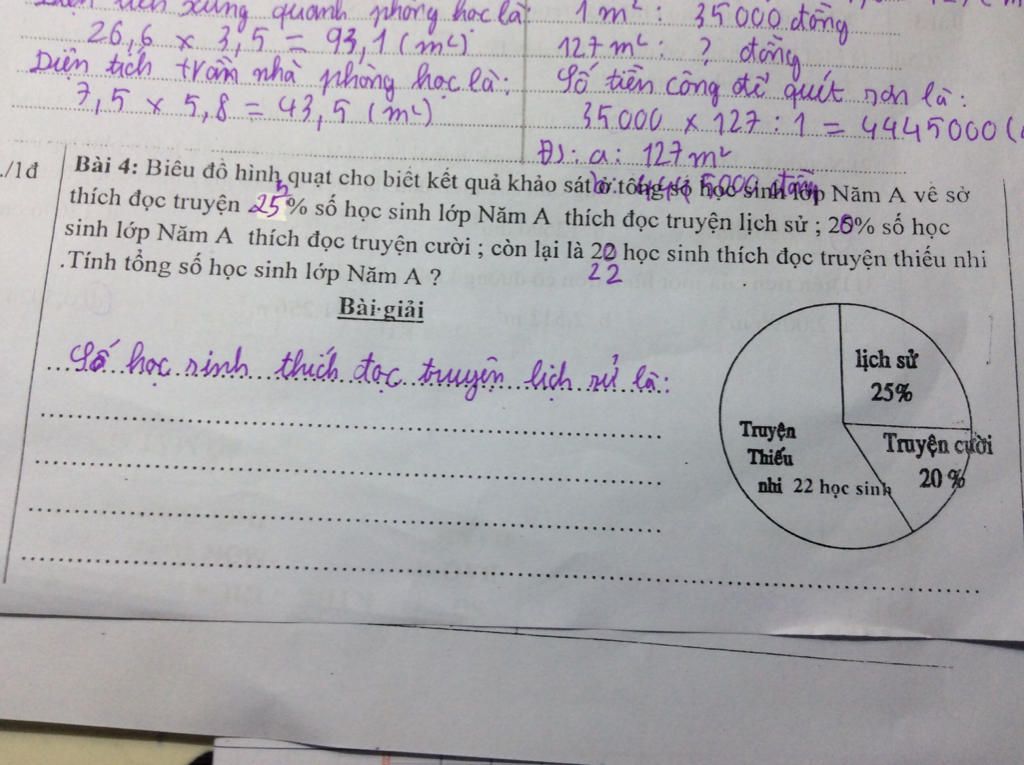 xung quanh phòng học là
26,6 x 3,5 = 93,1 (m²)
Diện tích trần nhà phòng học là:
7,5 x 5,8 = 43,5 (m²)
1 m² : 35 000 đồng
127 m² : ? đồng
Số tiền công để quét sơn là:
35 000 x 127 : 1 = 4445000 (
Đs: a: 127 m²
./1đ
Bài 4: Biểu đồ hình quạt cho biết kết quả khảo sát ở tổng số học sinh lớp Năm A về sở
thích đọc truyện 25% số học sinh lớp Năm A thích đọc truyện lịch sử ; 20% số học
sinh lớp Năm A thích đọc truyện cười ; còn lại là 22 học sinh thích đọc truyện thiếu nhi
22
.Tính tổng số học sinh lớp Năm A ?
Bài giải
Số học sinh thích đọc truyện lịch sử là:
lịch sử
25%
Truyện cười
20 %
Truyện
Thiếu
nhi 22 học sinh